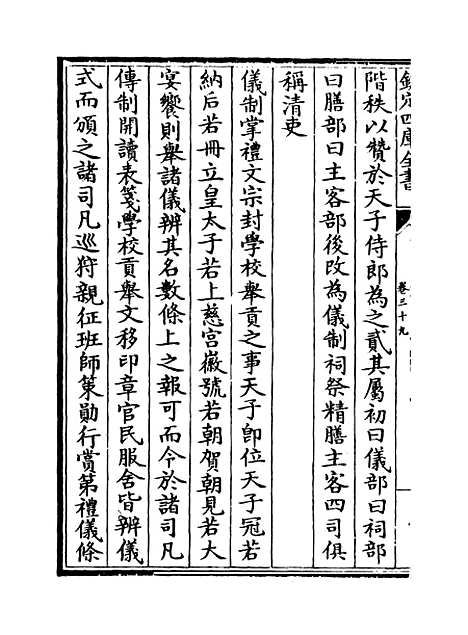 欽定四庫全書
卷三十九
階秩以贊於天子侍郎為之貳其屬初曰儀部曰祠部
曰膳部曰主客部後改為儀制祠祭精膳主客四司俱
稱清吏
儀制掌禮文宗封學校舉貢之事天子即位天子冠若
納后若冊立皇太子若上慈宮徽號若朝賀朝見若大
宴饗則舉諸儀辨其名數條上之報可而令於諸司凡
傳制開讀表箋學校貢舉文移印章官民服舍皆辨儀
式而頒之諸司凡巡狩親征班師策勛行賞第禮儀條